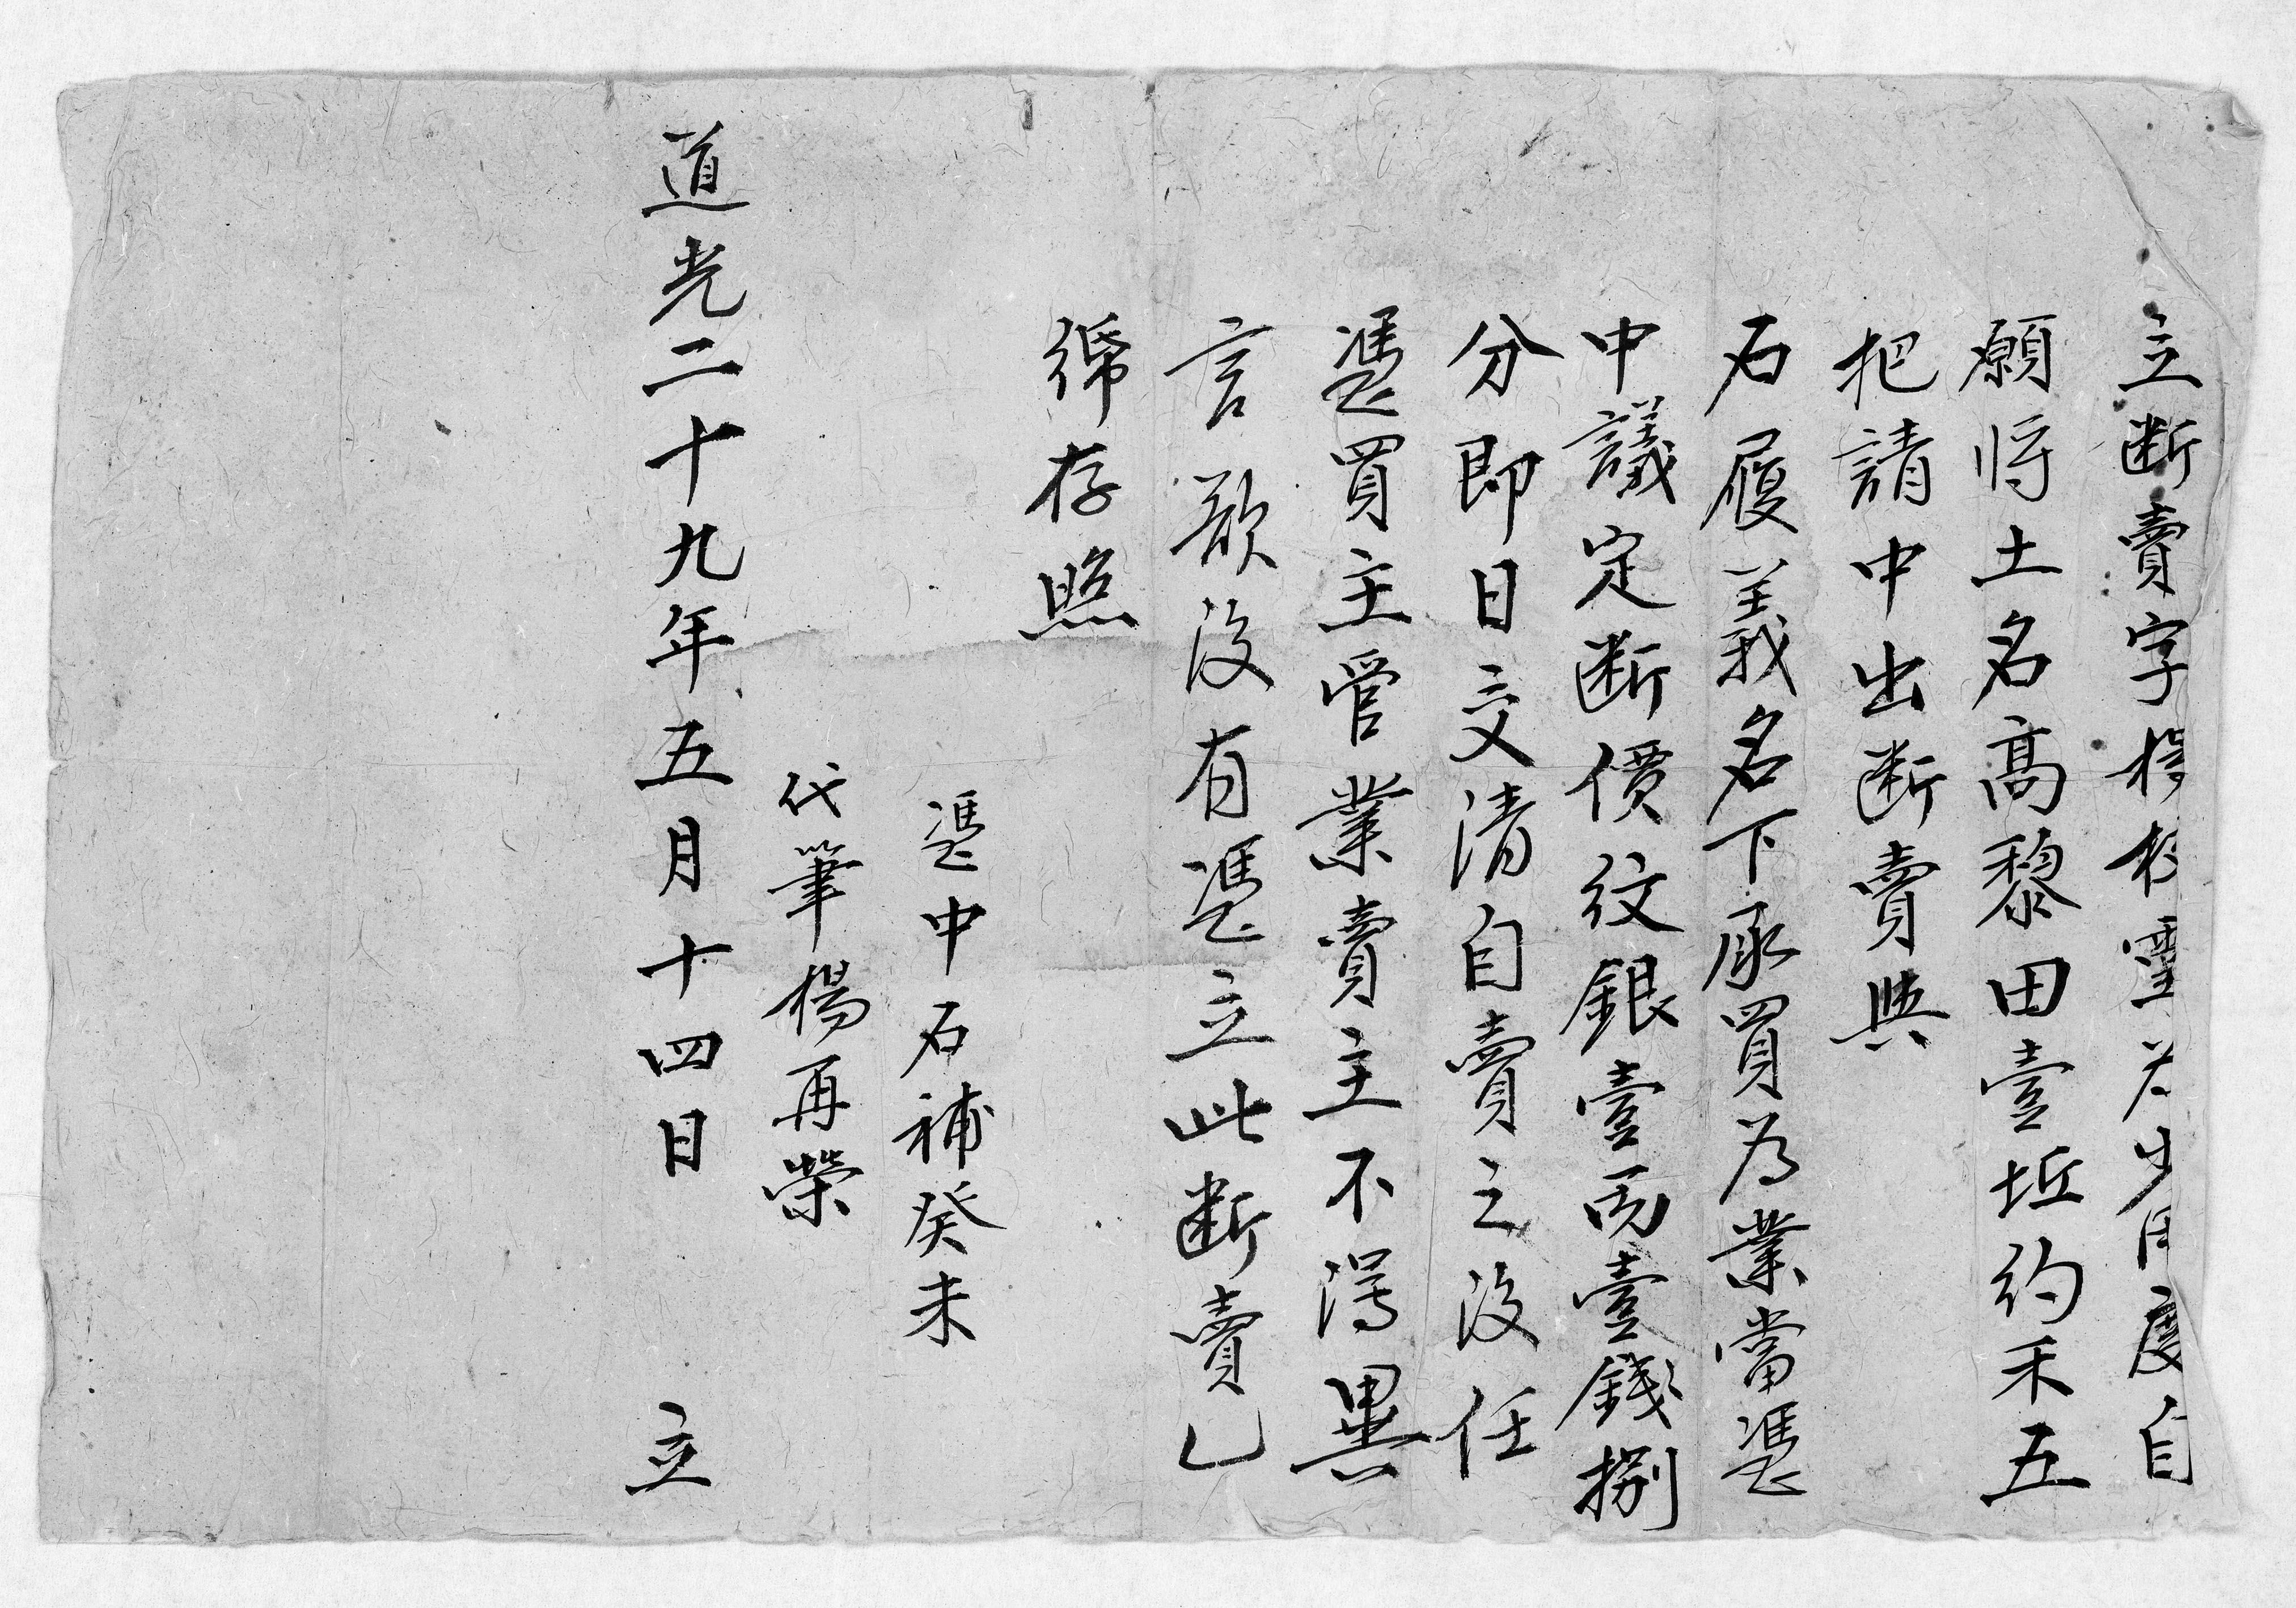 立断賣字楊 為少月度自
願将土名高黎田壹坵約禾五
把請中出断賣與
石履義名下承買為業當憑
中議定断價紋銀壹両壹錢捌
分即日交清自賣之後任
憑買主管業賣主不得異
言欲後有憑立此断賣乚
存照
憑中石補癸未
代筆楊再榮
道光二十九年五月十四日 立